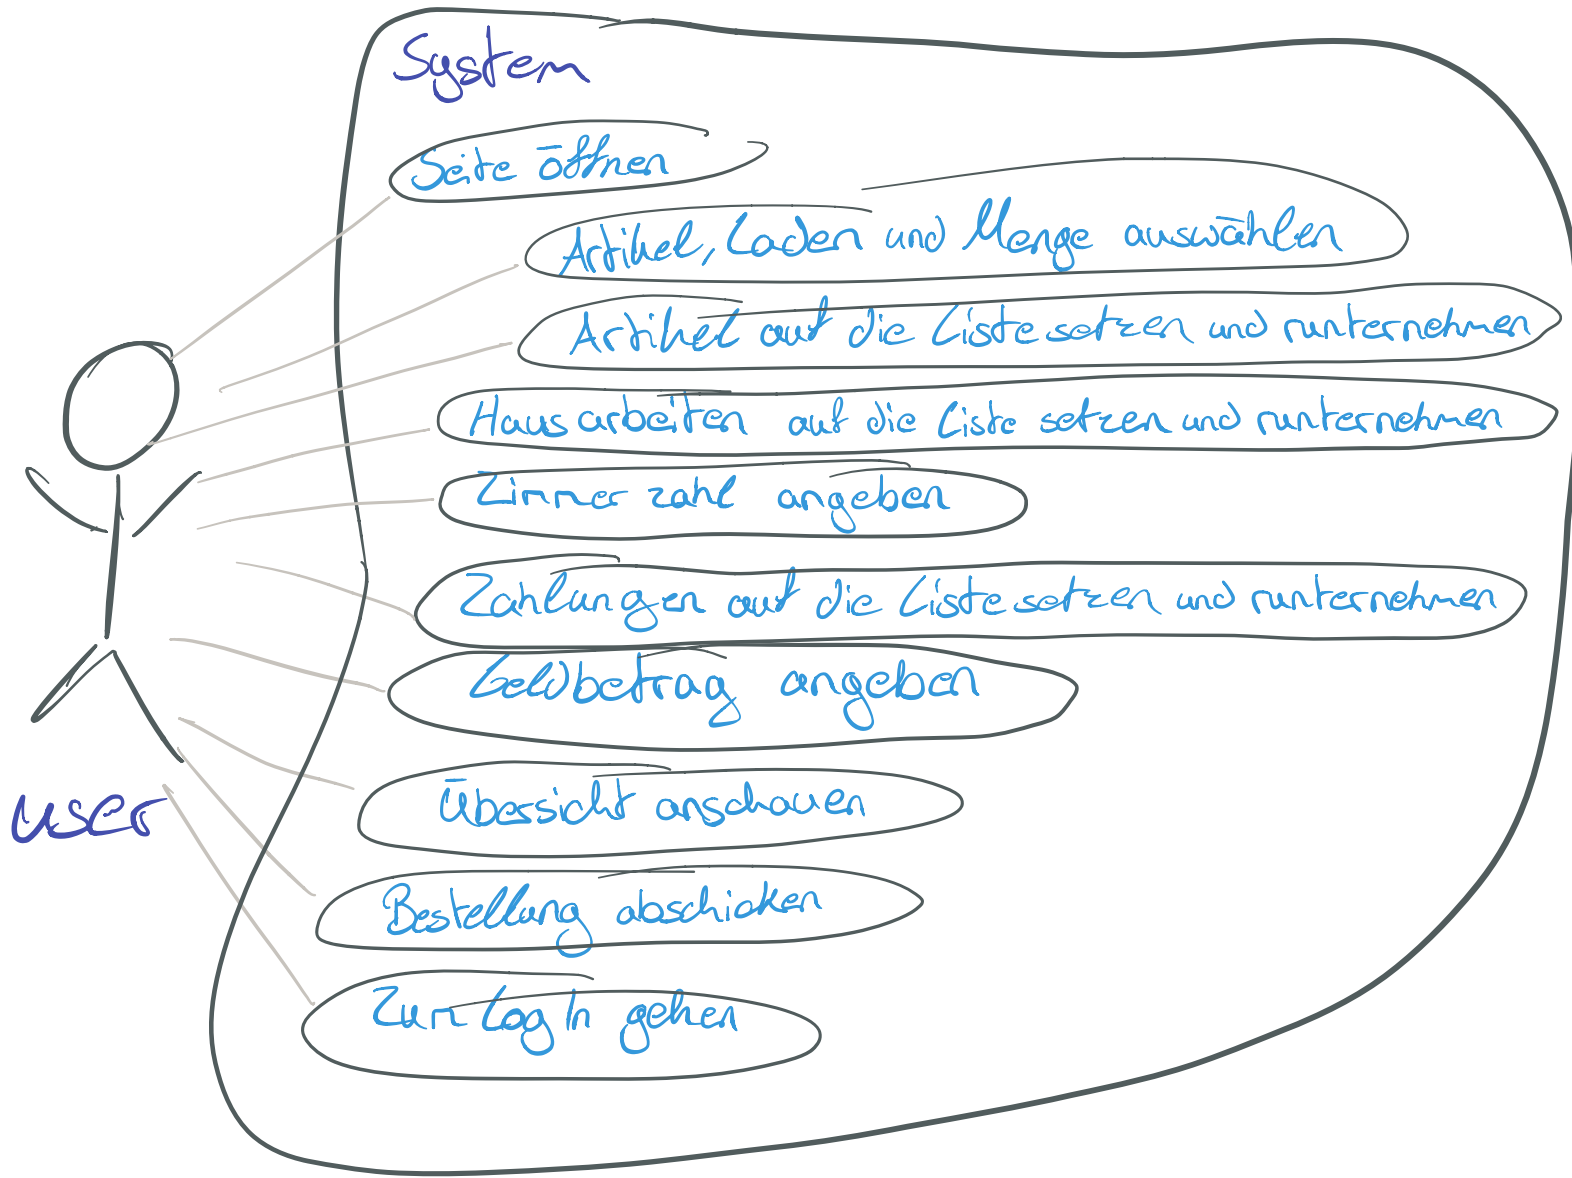 System
Seite öffnen
Artikel, Laden und Menge auswählen
Artikel auf die Liste setzen und runternehmen
Hausarbeiten auf die Liste setzen und runternehmen
Zimmerzahl angeben
Zahlungen auf die Liste setzen und runternehmen
Geldbetrag angeben
Übersicht anschauen
user
Bestellung abschicken
Zum Log In gehen